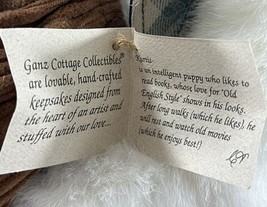 Ganz Cottage Collectibles®
are lovable, hand-crafted
keepsakes designed from
the heart of an artist and
stuffed with our love...
is an intelligent puppy who likes to
read books, whose love for 'Old
English Style' shows in his looks.
After long walks (which he likes), he
will rest and watch old movies
(which he enjoys best!)